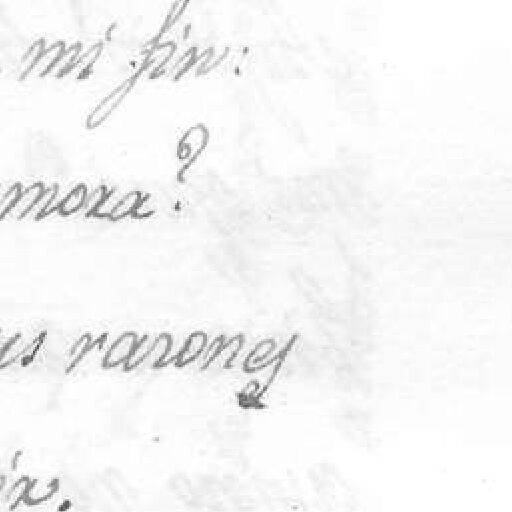 mi fin:
mora?
us razones
ix.